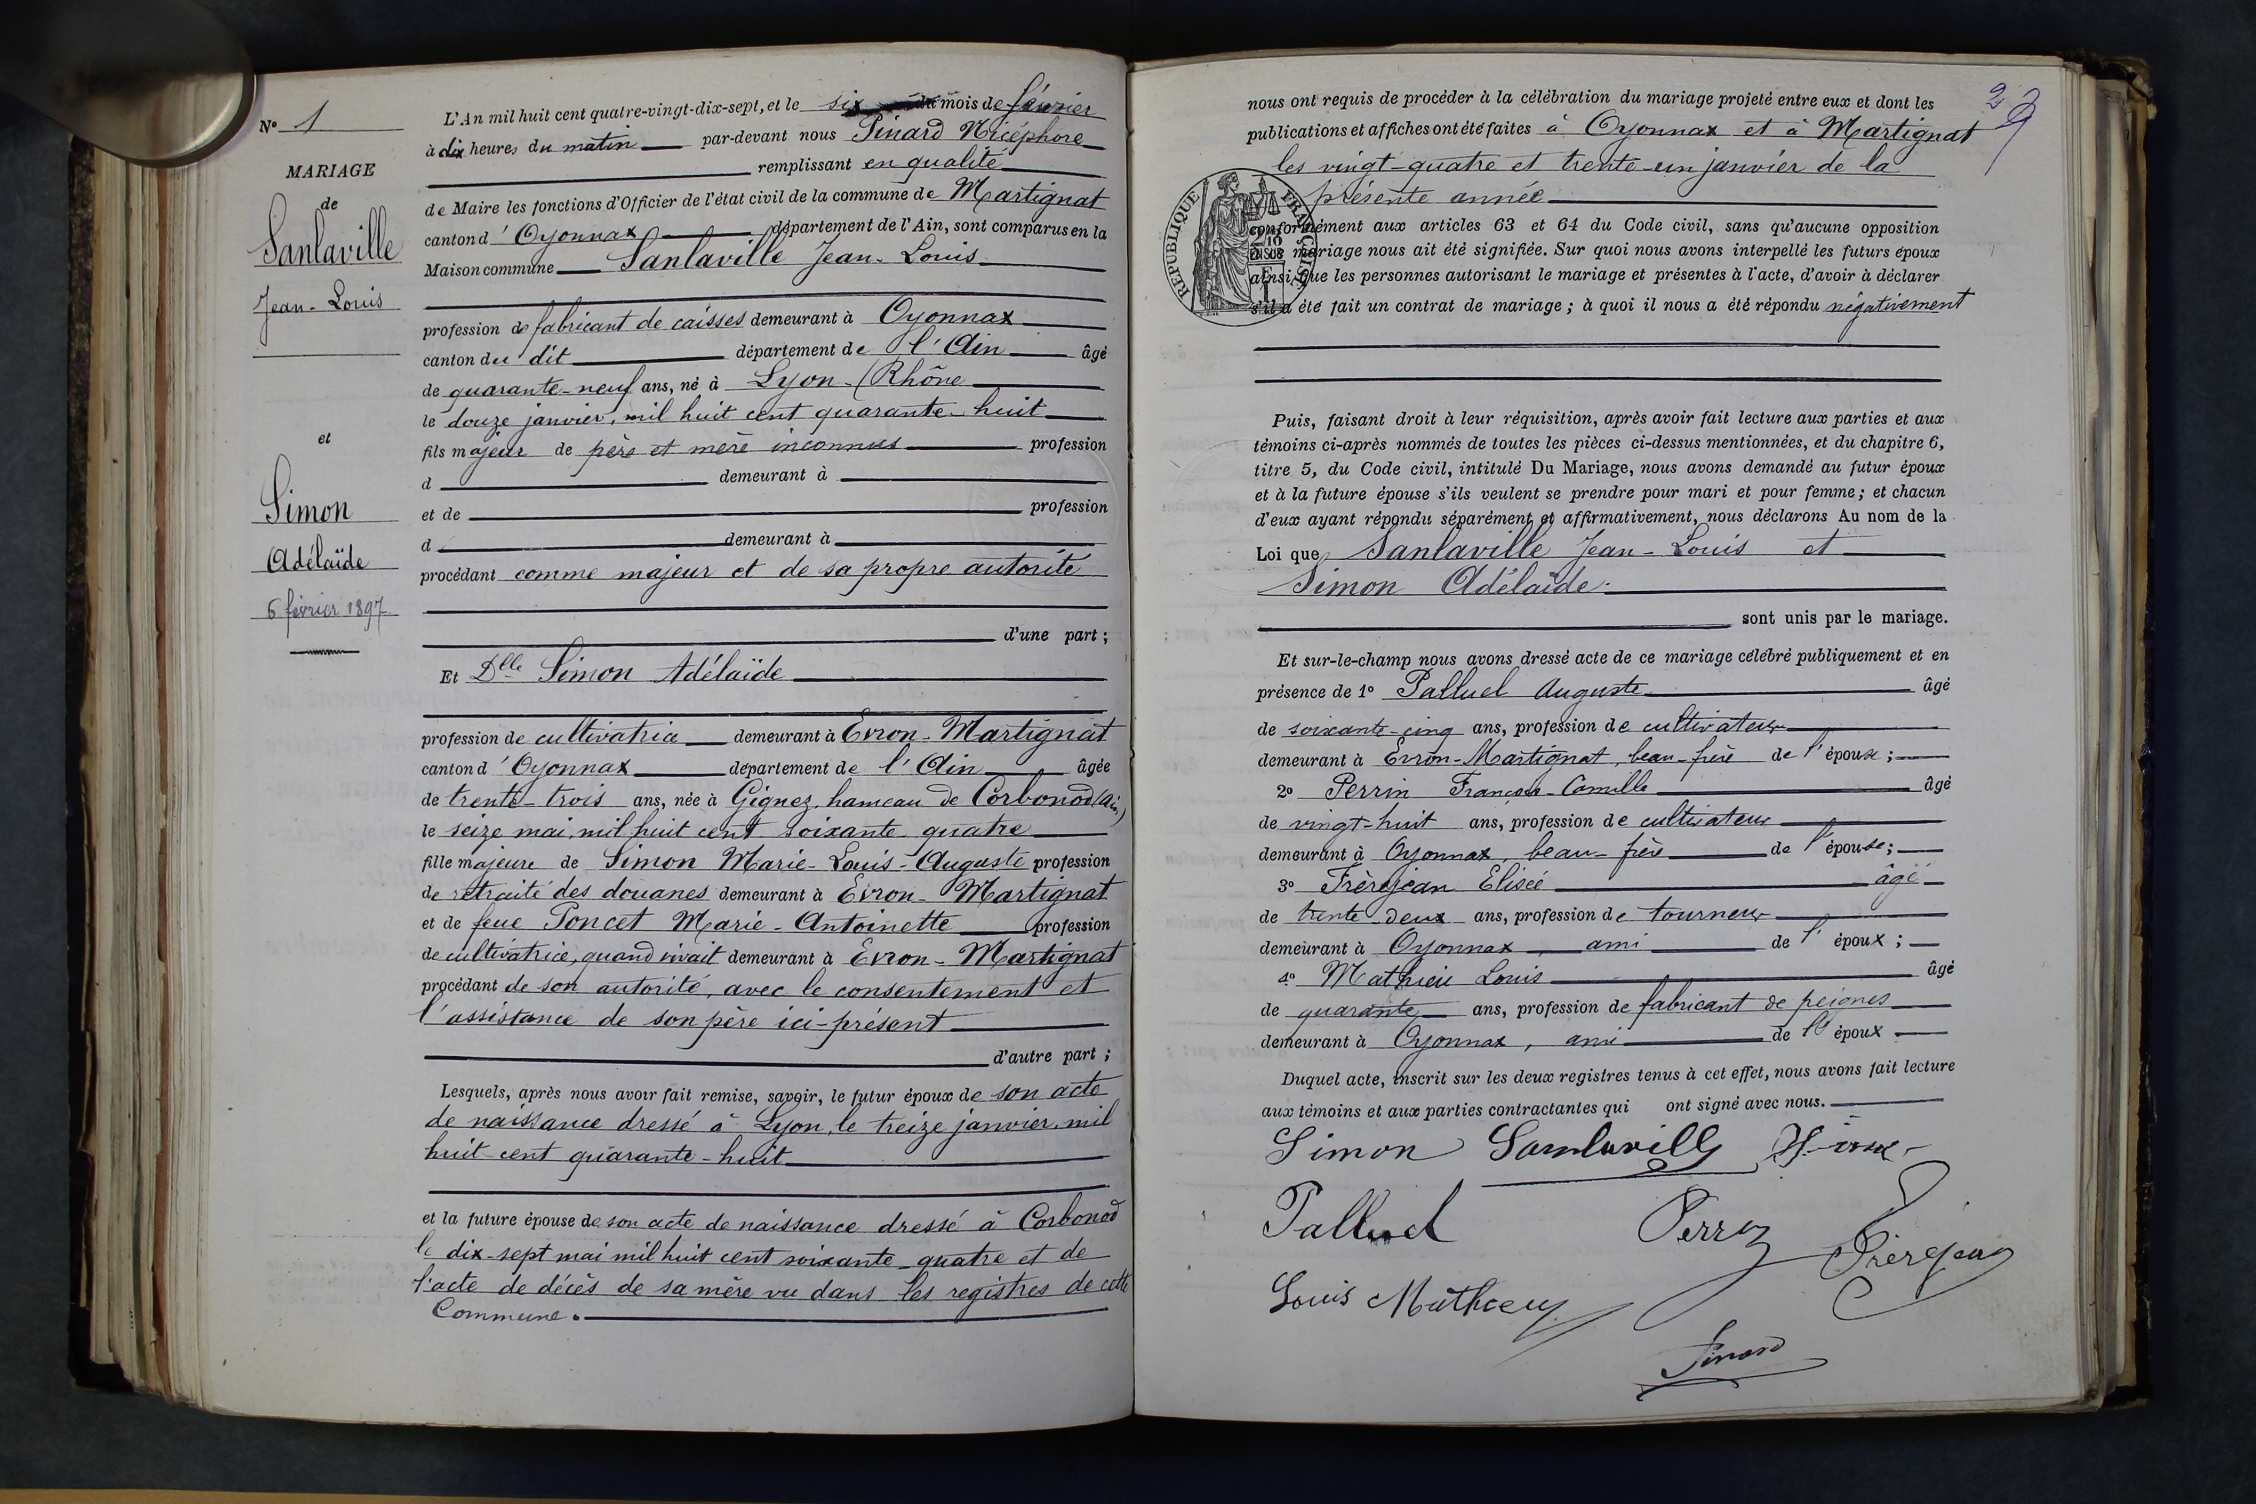 N° 1
MARIAGE
de
Sanlaville
Jean-Louis
et
Simon
Adélaïde
6 février 1897
L'An mil huit cent quatre-vingt-dix-sept, et le six du mois de février
à dix heures du matin par-devant nous Pinard Nicéphore
remplissant en qualité
de Maire les fonctions d'Officier de l'état civil de la commune de Martignat
canton d'Oyonnax département de l'Ain, sont comparus en la
Maison commune Sanlaville Jean-Louis
profession de fabricant de caisses demeurant à Oyonnax
canton du dit département de l'Ain âgé
de quarante-neuf ans, né à Lyon (Rhône
le douze janvier, mil huit cent quarante-huit
fils majeur de père et mère inconnus profession
d demeurant à
et de profession
d demeurant à
procédant comme majeur et de sa propre autorité
d'une part ;
Et Dlle Simon Adélaïde
profession de cultivatrice demeurant à Evron-Martignat
canton d'Oyonnax département de l'Ain âgée
de trente-trois ans, née à Gignez, hameau de Corbonod (Ain)
le seize mai, mil huit cent soixante quatre
fille majeure de Simon Marie-Louis-Auguste profession
de retraité des douanes demeurant à Evron-Martignat
et de feue Poncet Marie-Antoinette profession
de cultivatrice, quand vivait demeurant à Evron-Martignat
procédant de son autorité, avec le consentement et
l'assistance de son père ici-présent
d'autre part ;
Lesquels, après nous avoir fait remise, savoir, le futur époux de son acte
de naissance dressé à Lyon, le treize janvier, mil
huit-cent quarante-huit
et la future épouse de son acte de naissance dressé à Corbonod
le dix-sept mai mil huit cent soixante-quatre et de
l'acte de décès de sa mère vu dans les registres de cette
Commune.
2
nous ont requis de procéder à la célébration du mariage projeté entre eux et dont les
publications et affiches ont été faites à Oyonnax et à Martignat
les vingt-quatre et trente-un janvier de la
présente année
RÉPUBLIQUE FRANÇAISE
conformément aux articles 63 et 64 du Code civil, sans qu'aucune opposition
mariage nous ait été signifiée. Sur quoi nous avons interpellé les futurs époux
ainsi que les personnes autorisant le mariage et présentes à l'acte, d'avoir à déclarer
s'il a été fait un contrat de mariage ; à quoi il nous a été répondu négativement
Puis, faisant droit à leur réquisition, après avoir fait lecture aux parties et aux
témoins ci-après nommés de toutes les pièces ci-dessus mentionnées, et du chapitre 6,
titre 5, du Code civil, intitulé Du Mariage, nous avons demandé au futur époux
et à la future épouse s'ils veulent se prendre pour mari et pour femme ; et chacun
d'eux ayant répondu séparément et affirmativement, nous déclarons Au nom de la
Loi que Sanlaville Jean-Louis et
Simon Adélaïde
sont unis par le mariage.
Et sur-le-champ nous avons dressé acte de ce mariage célébré publiquement et en
présence de 1° Palluel Auguste âgé
de soixante-cinq ans, profession de cultivateur
demeurant à Evron-Martignat, beau-frère de l'épouse ;
2° Perrin François-Camille âgé
de vingt-huit ans, profession de cultivateur
demeurant à Oyonnax, beau-frère de l'épouse ;
3° Frèrejean Elisée âgé
de trente-deux ans, profession de tourneur
demeurant à Oyonnax, ami de l'époux ;
4° Mathieu Louis âgé
de quarante ans, profession de fabricant de peignes
demeurant à Oyonnax, ami de l'époux
Duquel acte, inscrit sur les deux registres tenus à cet effet, nous avons fait lecture
aux témoins et aux parties contractantes qui ont signé avec nous.
Simon Sanlaville
Palluel Perrin Frèrejean
Louis Mathieu
Pinard